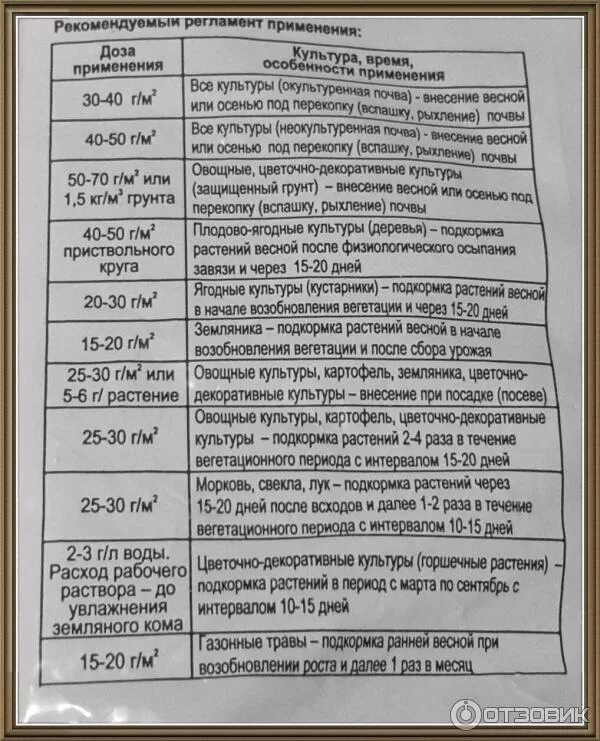 Рекомендуемый регламент применения:
Доза
применения
Культура, время,
особенности применения
30-40 г/м²
Все культуры (окультуренная почва) - внесение весной
или осенью под перекопку (вспашку, рыхление) почвы
40-50 г/м²
Все культуры (неокультуренная почва) - внесение весной
или осенью под перекопку (вспашку, рыхление) почвы
50-70 г/м² или
1,5 кг/м³ грунта
Овощные, цветочно-декоративные культуры
(защищенный грунт) – внесение весной или осенью под
перекопку (вспашку, рыхление) почвы
40-50 г/м²
приствольного
круга
Плодово-ягодные культуры (деревья) – подкормка
растений весной после физиологического осыпания
завязи и через 15-20 дней
20-30 г/м²
Ягодные культуры (кустарники) – подкормка растений весной
в начале возобновления вегетации и через 15-20 дней
15-20 г/м²
Земляника – подкормка растений весной в начале
возобновления вегетации и после сбора урожая
25-30 г/м² или
5-6 г/ растение
Овощные культуры, картофель, земляника, цветочно-
декоративные культуры – внесение при посадке (посеве)
25-30 г/м²
Овощные культуры, картофель, цветочно-декоративные
культуры – подкормка растений 2-4 раза в течение
вегетационного периода с интервалом 15-20 дней
25-30 г/м²
Морковь, свекла, лук – подкормка растений через
15-20 дней после всходов и далее 1-2 раза в течение
вегетационного периода с интервалом 10-15 дней
2-3 г/л воды.
Расход рабочего
раствора – до
увлажнения
земляного кома
Цветочно-декоративные культуры (горшечные растения) –
подкормка растений в период с марта по сентябрь с
интервалом 10-15 дней
15-20 г/м²
Газонные травы – подкормка ранней весной при
возобновлении роста и далее 1 раз в месяц
ОТЗОВИК